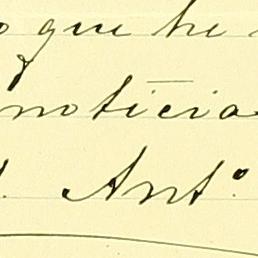 que he
noticia
Antº